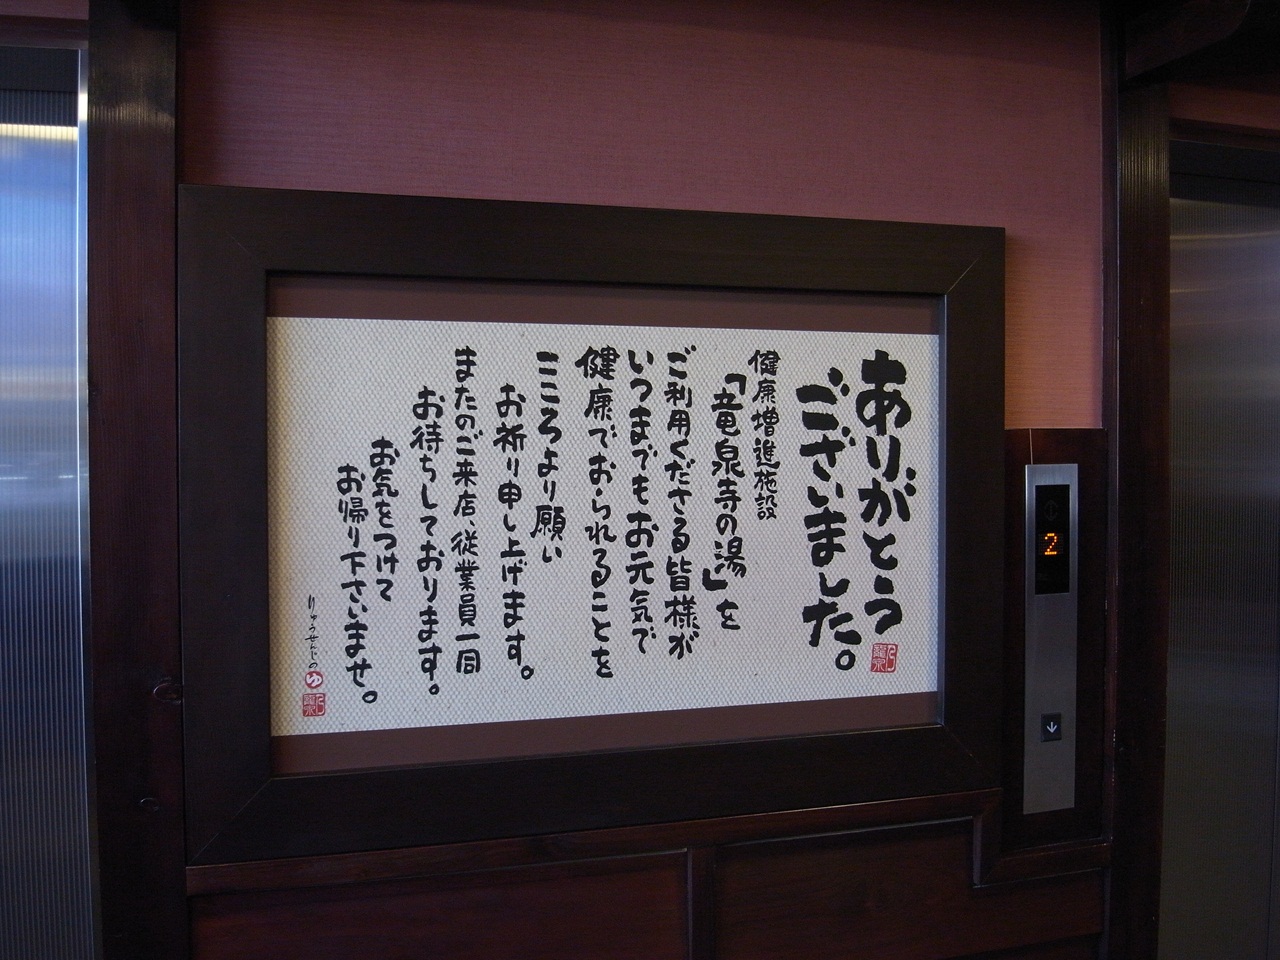 ありがとう
ございました。
健康増進施設
「竜泉寺の湯」を
ご利用くださる皆様が
いつまでもお元気で
健康でおられることを
こころより願い
お祈り申し上げます。
またのご来店、従業員一同
お待ちしております。
お気をつけて
お帰り下さいませ。
りゅうせんじの
ゆ
2